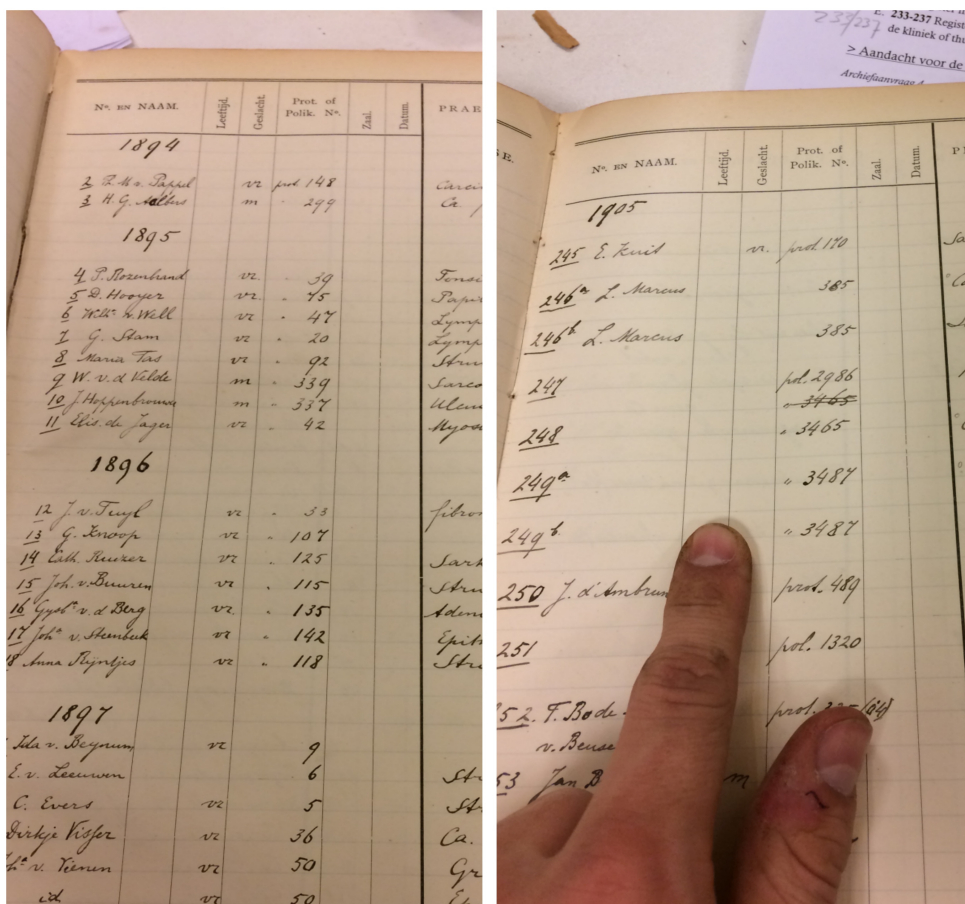 Nº. EN NAAM. Leeftijd. Geslacht. Prot. of Polik. Nº. Zaal. Datum. PRAE
1894
2 vr prot 148
3 H. G. Aalbers m " 299 Ca.
1895
4 P. Rozenhand vr " 39 Tonsi
5 D. Hooyer vr " 75 Papi
6 v. Well vr " 47 Lymp
7 G. Stam vr " 20 Lymp
8 Maria Tas vr " 92 Stru
9 W. v. d Velde m " 339 Sarco
10 J. Hoppenbrouwe m " 337 Ulcu
11 Elis. de Jager vr " 42 Myos
1896
12 J. v. Tuyl vr " 33 fibro
13 G. Knoop vr " 107
14 Cath. vr " 125 Sark
15 Joh. v. Buuren vr " 115 Stru
16 v. d Berg vr " 135 Aden
17 Johª v. Steenbeek vr " 142 Epith
8 Anna Rijntjes vr " 118 Stru
1897
Ida v. Beynum vr 9
E. v. Leeuwen 6 St
C. Evers vr 5 St
Dirkje Visser vr 36 Ca.
v. Vienen vr 50 Gr
id vr 50
E. 233-237 Regist
233/237
de kliniek of thu
> Aandacht voor de
Archiefaanvrage
E.
Nº. EN NAAM. Leeftijd. Geslacht. Prot. of Polik. Nº. Zaal. Datum. P
1905
245 E. Kuit vr. prot. 170 Sa
246ª L. Marcus 385 Ca
246ᵇ L. Marcus 385
247 pol. 2986
" 3465
248 " 3465
249ª " 3487
249ᵇ " 3487
250 J. d'Ambrun prot. 489
251 pol. 1320
52. F. Bode prot.
v. Beuse
53 Jan B m